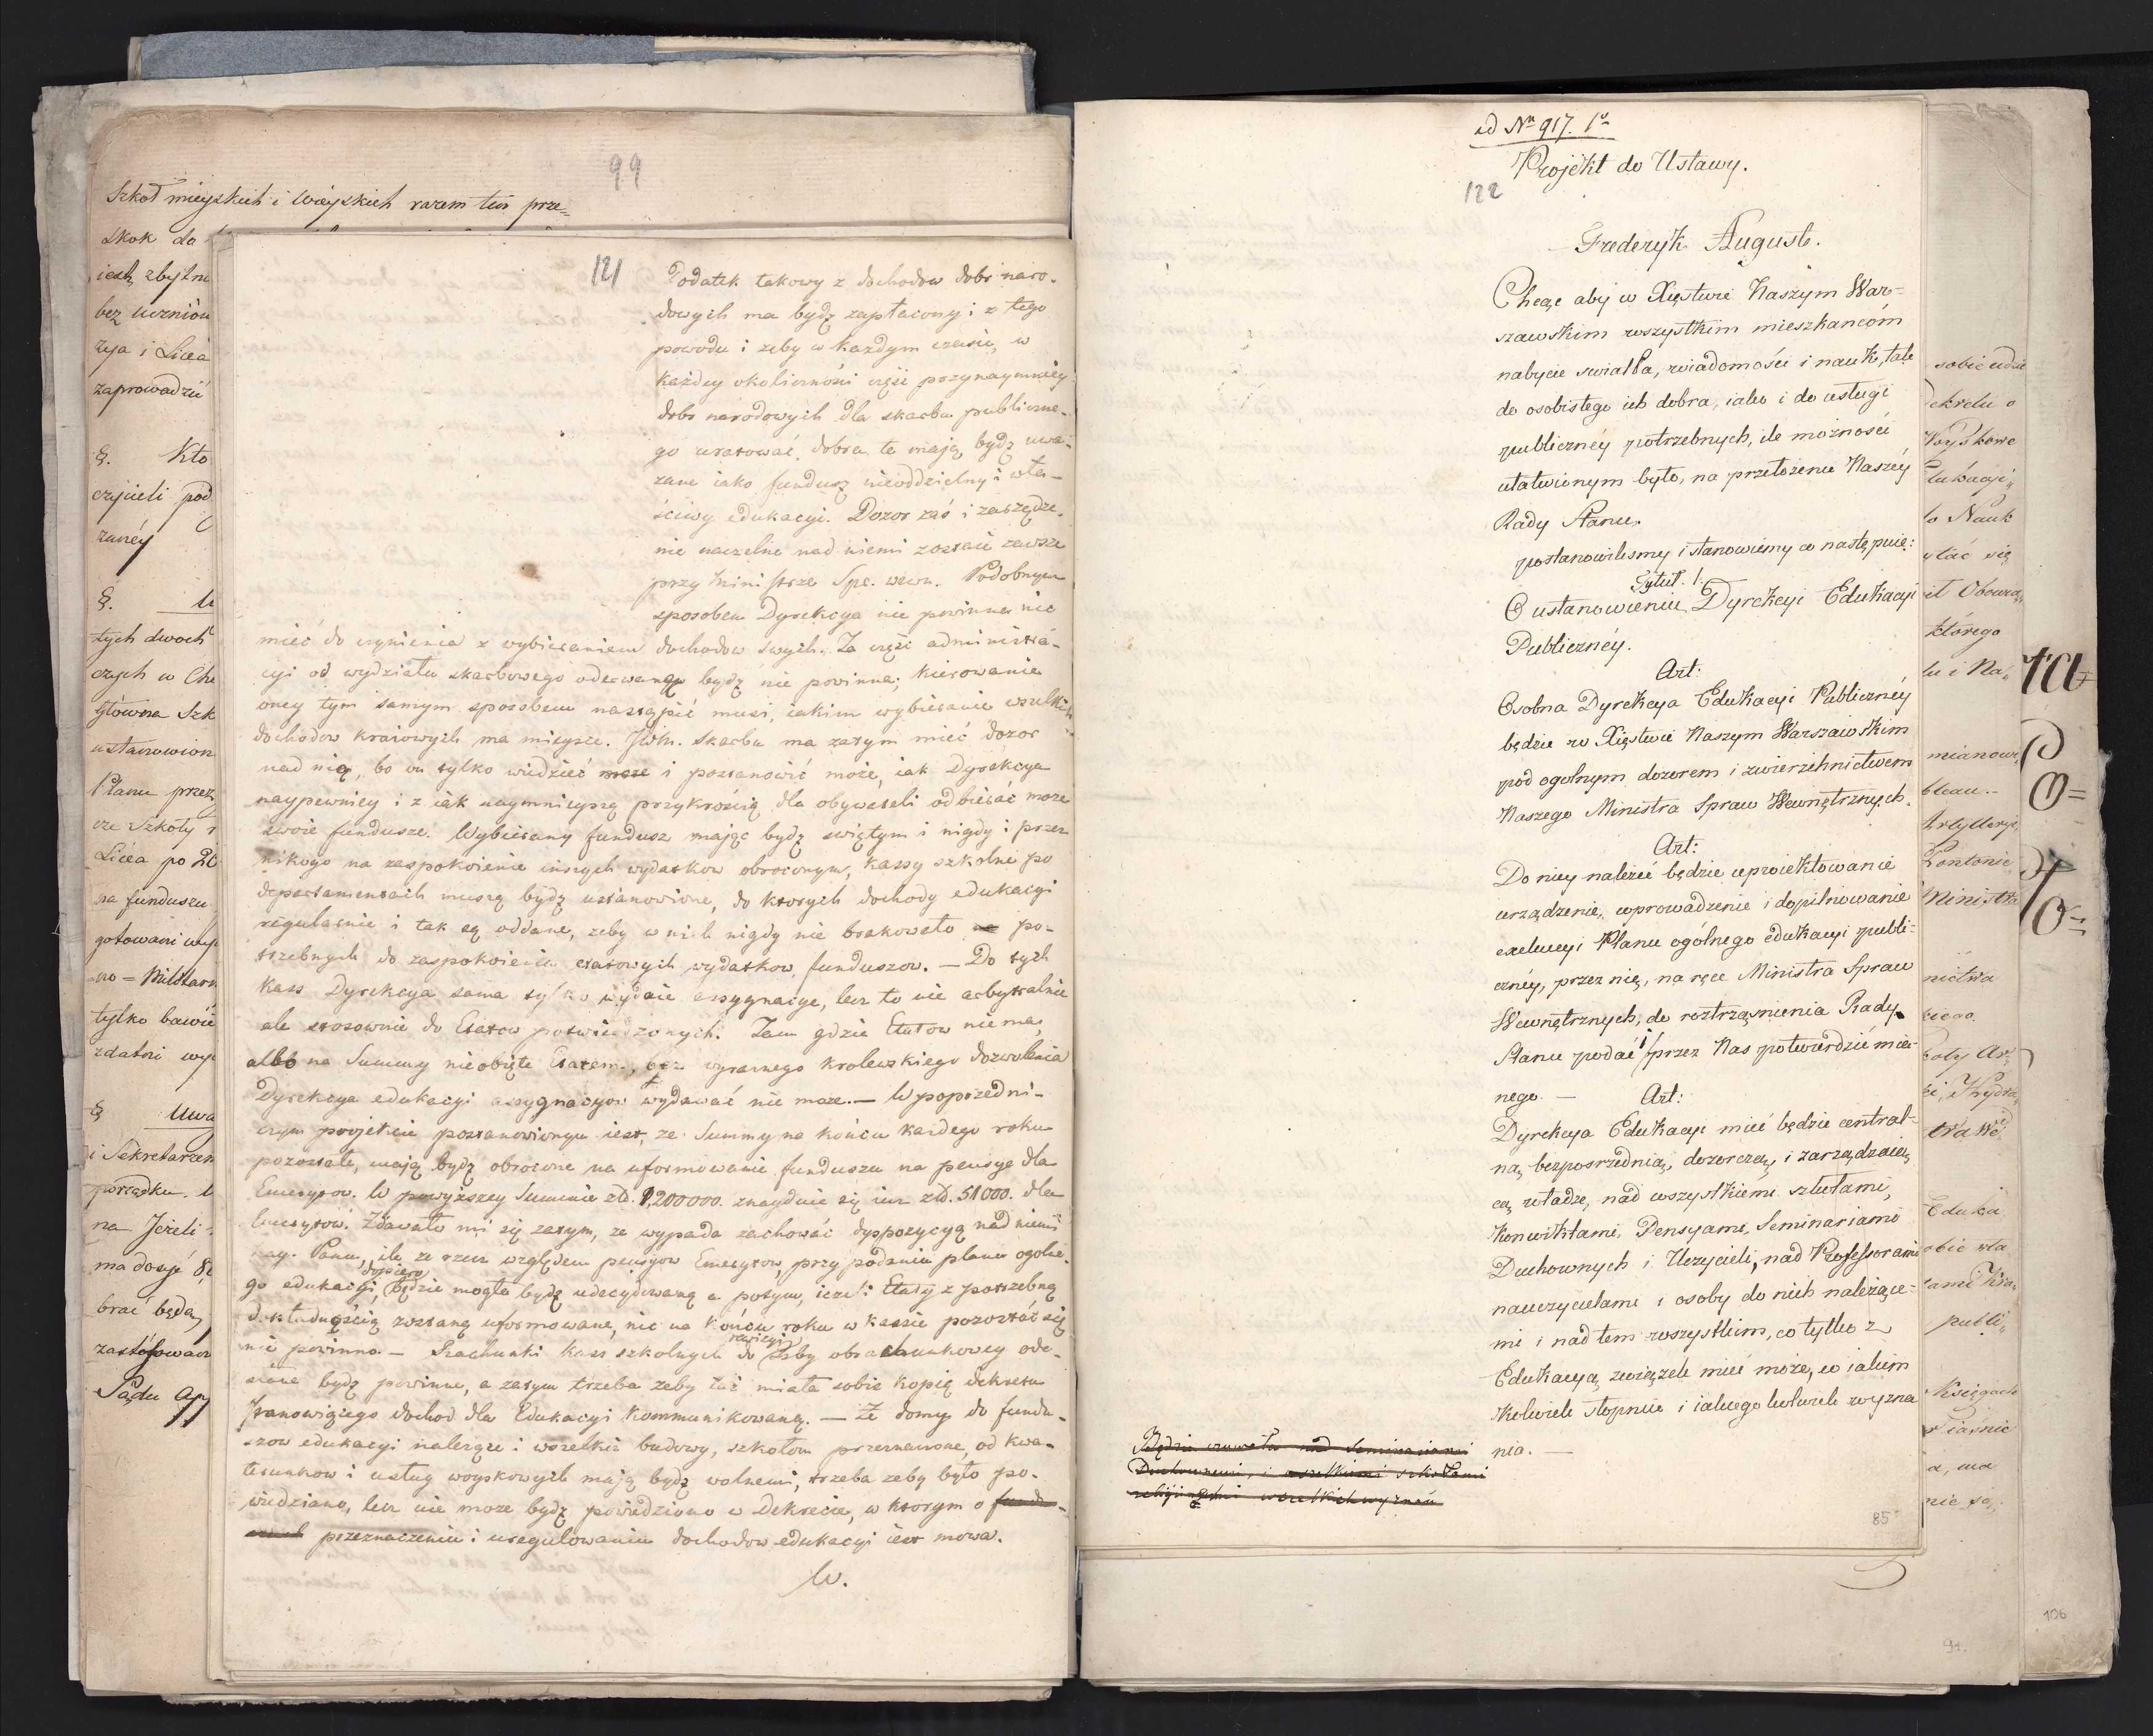 99
Szkoł mieyskich i Wieyskich razem ten prze=
skok do
iest zbytni
bez uczniów
zya i Licea
zaprowadzić
§. Kto
czycieli pod
zaney
§.
tych dwoch
czych w Che
główna Szk
ustanowion
Planu przez
cze Szkoły
Licea po 20
na funduszu
gotowani
no = Militarn
tylko bawić
zdatni
§ Uwa
i Sekretarzem
porządku.
na Jeżeli
ma dosyć
brać będą
zastósowan
Sądu Ap
121
Podatek takowy z dochodow dobr naro-
dowych ma bydź zapłacony i z tego
powodu i zeby w kazdym czasie, w
każdey okoliczności częśc przynaymniey
dobr narodowych dla skarbu publiczne-
go uratować, dobra te mają bydź uwa-
zane iako fundusz nieoddzielny i wła-
ściwy edukacyi. Dozor zaś i zarządze-
nie naczelne nad niemi zostaie zawsze
przy Ministrze Spr. wewn. Podobnym
sposobem Dyrekcya nie powinna nic
mieć do czynienia z wybieraniem dochodow swych. Ta część administra-
cyi od wydziału skarbowego oderwaną bydź nie powinna; kierowanie
oney tym samym sposobem nastąpić musi, iakim wybieranie wszelkich
dochodow kraiowych ma mieysce. JWM. Skarbu ma zatym mieć dozor
nad nią, bo on tylko widzieć moze i postanowić może, iak Dyrekcya
naypewniey i z iak naymnieyszą przykrością dla obywateli odbierać moze
swoie fundusze. Wybierany fundusz mając bydź świętym i nigdy i przez
nikogo na zaspokoienie innych wydatkow obroconym, kassy szkolne po
departamentach muszą bydź ustanowione, do ktorych dochody edukacyi
regularnie i tak są oddane, zeby w nich nigdy nie brakowało po-
trzebnych do zaspokoienia etatowych wydatkow, funduszow. — Do tych
Kass Dyrekcya sama tylko wydaie assygnacye, lecz to nie arbytralnie
ale stosownie do Etatow potwierdzonych. Tam gdzie Etatow niema,
albo na Summy nieobięte Etatem, bez wyraznego krolewskiego dozwolenia
Dyrekcya edukacyi assygnacyow wydawać nie moze. — W poprzedni-
czym projekcie postanowionym iest, ze Summy na końcu kazdego roku
pozostałe, mają bydź obrocone na uformowanie funduszu na pensye dla
Emerytow. W powyższey Summie zł. 1,200000. znayduie się iuz zł. 51000. dla
Emerytow. Zdawało mi się zatym, ze wypada zachować dyspozycyą nad niemi
nay. Panu, ile ze rzecz względem pensyow Emerytow, przy podaniu planu ogolne-
dopiero
go edukacyi, będzie mogła bydź udecydowaną a potym, iezeli Etaty z potrzebną
dokładnością zostaną uformowane, nic na końcu roku w kassie pozostać się
rewizyi
nie powinno. — Rachunki kass szkolnych do Izby obrachunkowey ode-
słane bydź powinne, a zatym trzeba zeby taż miała sobie kopię dekretu
stanowiącego dochod dla Edukacyi kommunikowaną. — Ze domy do fundu-
szow edukacyi nalezące i wszelkie budowy, szkołom przeznaczone, od kwa-
terunkow i usług woyskowych mają bydź wolnemi, trzeba zeby było po-
wiedziano, lecz nie moze bydź powiedziono w Dekrecie, w ktorym o fundu-
szach przeznaczeniu i uregulowaniu dochodow edukacyi iest mowa.
W.
ad Nn 917. 1o
Projekt do Ustawy.
122
Frederyk August.
Chcąc aby w Xięstwie Naszym War=
szawskim wszystkim mieszkancóm
nabycie swiatła, wiadomości i nauk, tak
do osobistego ich dobra, iako i do usługi
publicznéy potrzebnych, ile możności
ułatwionym było, na przełożenie Naszéy
Rady Stanu.
postanowilismy i stanowiemy co następuie:
Tytuł. 1.
O ustanowieniu Dyrekcyi Edukacyi
Publicznéy.
Art:
Osobna Dyrekcya Edukacyi Publicznéy
będzie w Xięstwie Naszym Warszawskim
pod ogolnym dozorem i zwierzchnictwem
Naszego Ministra Spraw Wewnętrznych.
Art:
Do niey należeć będzie uproiektowanie
urządzenie, wprowadzenie i dopilnowanie
exekucyi Planu ogólnego edukacyi publi=
cznéy, przez nię, na ręce Ministra Spraw
Wewnętrznych, do roztrząśnienia Rady
Stanu podać i przez Nas potwierdzić mia=
nego. —
Art:
Dyrekcya Edukacyi mieć będzie central=
ną bezposrzednią, dozorczą, i zarządzaią=
cą władzę, nad wszystkiemi szkołami,
Konwiktami, Pensyami, Seminariami
Duchownych i Uczycieli, nad Professorami
nauczycielami i osoby do nich należące=
mi i nad tem wszystkim, co tylko z
Edukacyą związek mieć może, w iakim
kolwiek stopniu i iakiego kolwiek wyzna
nia. —
Będzie czuwała nad Seminariami
Duchownemi, i wszelkiemi szkołami
religijnemi wszelkich wyznań
85
sobie udzie
Dekretu o
Woyskowe
Edukacyi
do Nauk
ytać się
it Obowią
którego
lu i Na
mianow
bleau.
Artylleryi
Kantonie
Ministra
nictwa
kiego
koły Ar
Eduka
obie wła
tami Kra
publi
Xsięgach
nie są
94.
106